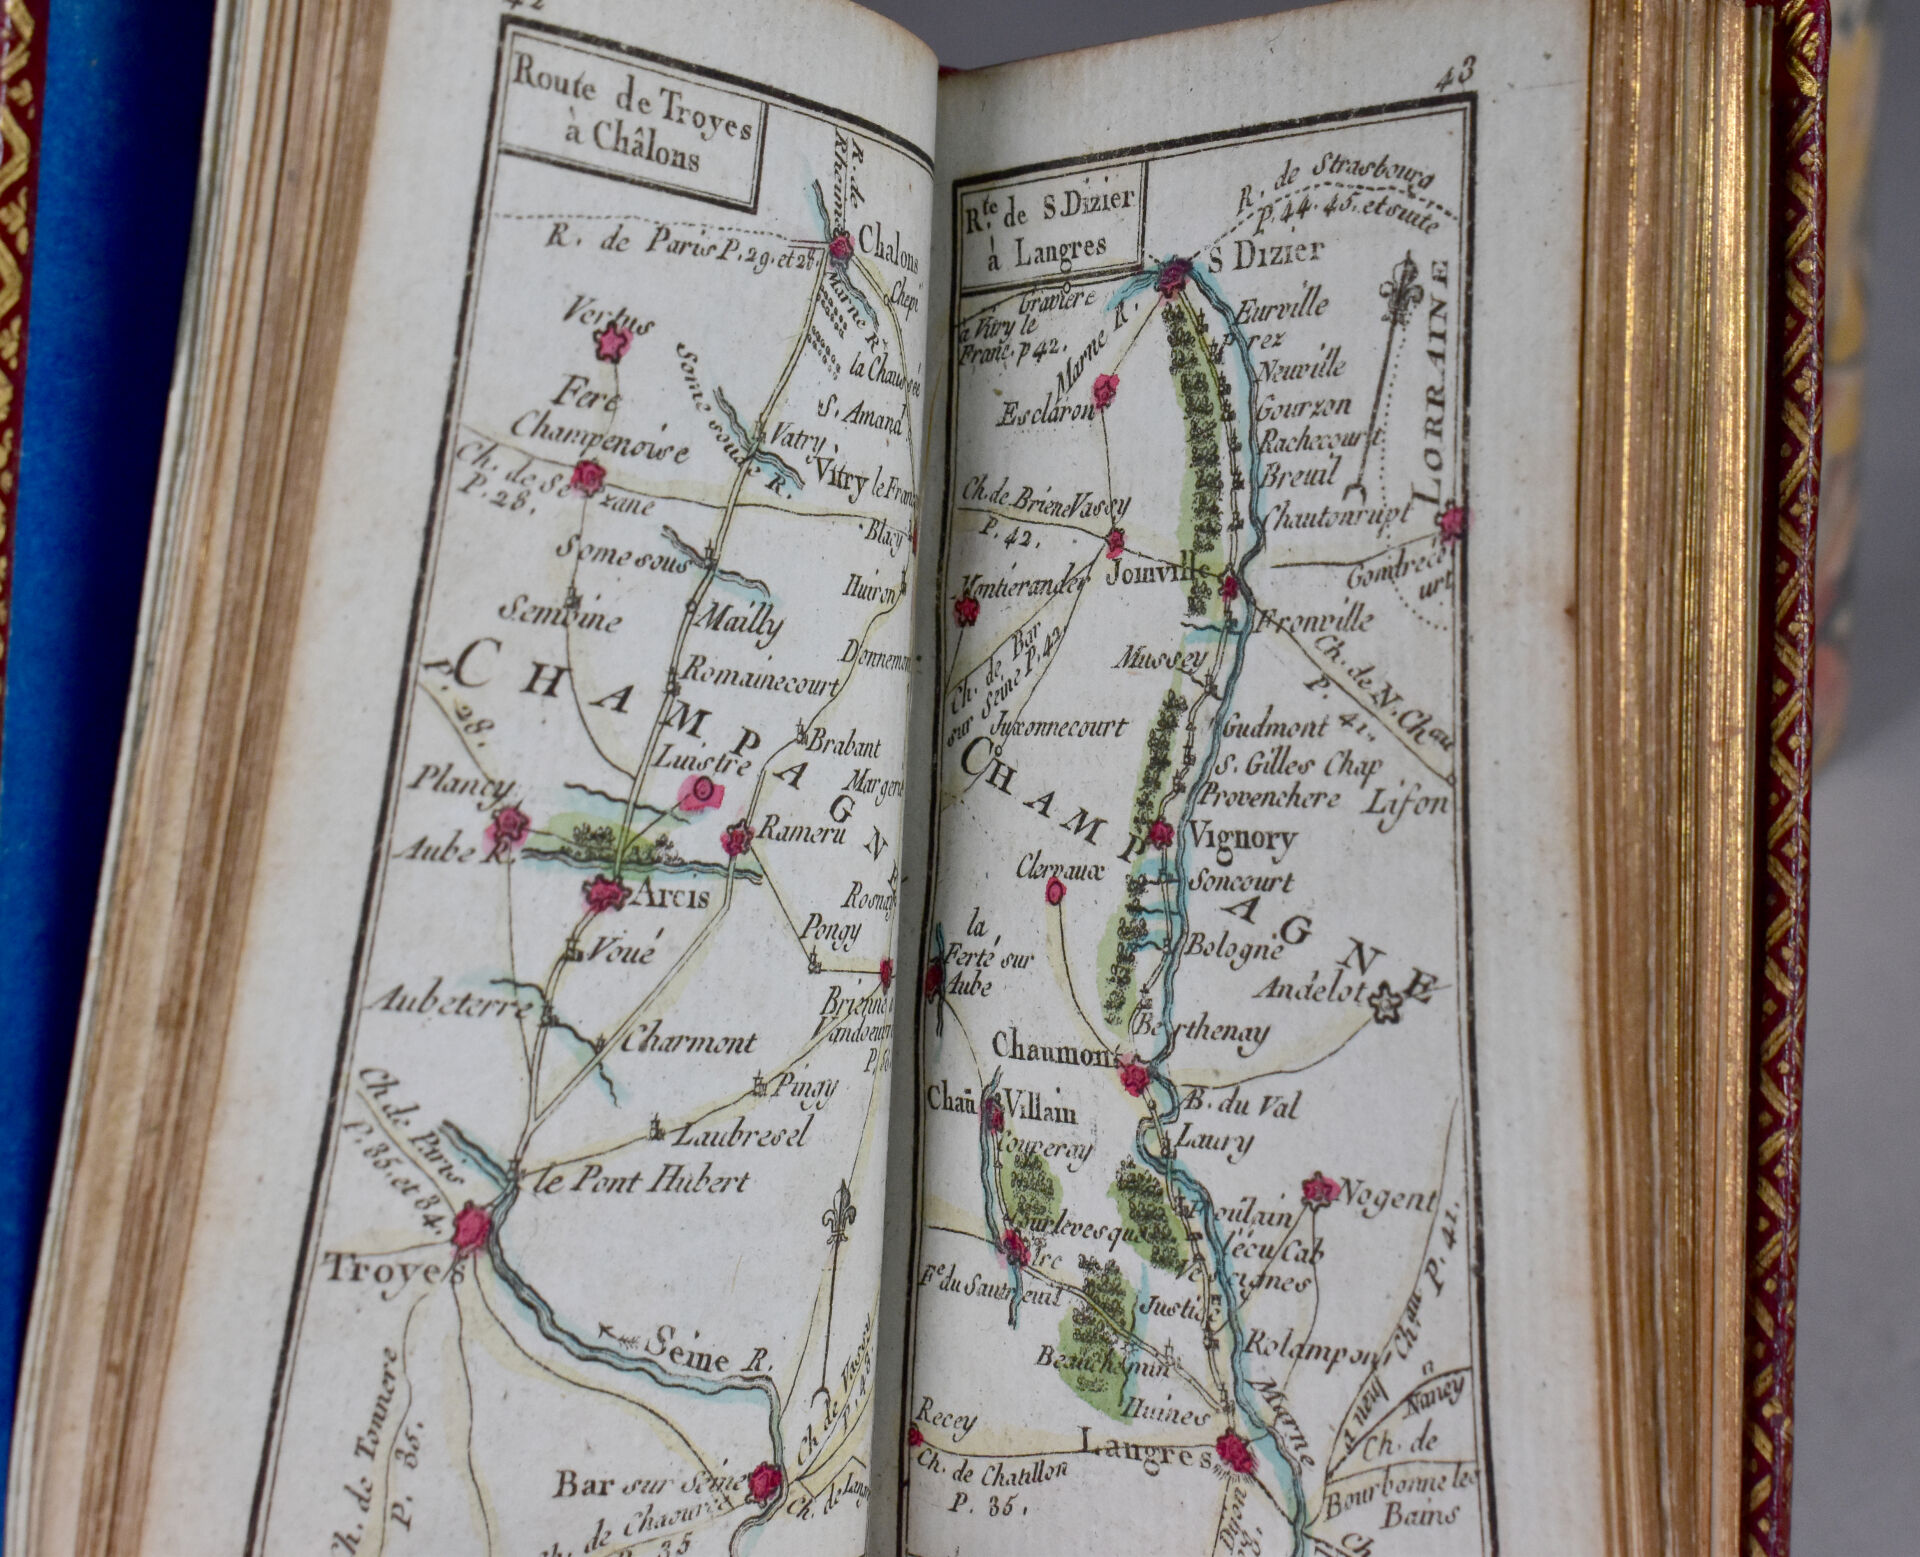 42
Route de Troyes
à Châlons
R. de
Rheims
R. de Paris P. 29. et 28.
Chalons
Chepi
Marne R.
Vertus
la Chaussée
S. Amand
Some soude R.
Fere
Champenoise
Vatry
Vitry le Franç
Ch. de Sezane
P. 28.
Blacy
Some sous
Huiron
Semoine
Mailly
Donnement
Romainecourt
CHAMPAGNE
P. 28.
Brabant
Luistre
Margerie
Plancy
Rameru
Aube R.
Arcis
Rosnay
Pongy
Voué
Brienne
Aubeterre
Charmont
Vandoeuvre
Pingy
Ch. de Paris
P. 35. et 34.
Laubresel
le Pont Hubert
Troyes
Seine R.
Ch. de Tonnere
P. 35.
Ch. de
P. 48.
Bar sur Seine
Ch. de Chaource
P. 35
Ch. de Langr
43
R.te de S. Dizier
à Langres
R. de Strasbourg
P. 44. 45. et suite
S Dizier
Graviere
à Vitry le
Franç. p 42.
Marne R.
Eurville
Prez
Neuville
Esclaron
Gourzon
Rachecourt
Breuil
LORRAINE
Ch. de Briene
P. 42.
Vassy
Chautonrupt
Joinville
Gondrecourt
Montierander
Fronville
Ch. de Bar
sur Seine P. 42
Mussey
Ch. de N. Chau
P. 41.
Juxonnecourt
Gudmont
S. Gilles Chap
Provenchere
Lifon
CHAMPAGNE
Vignory
Clervaux
Soncourt
la
Ferté sur
Aube
Bologne
Andelot
Berthenay
Chaumont
Chau Villain
B. du Val
Laury
Couperay
Nogent
Foulain
l'écu Cab
Vesaignes
Arc
Fe du Sautreuil
Justice
Rolampont
Beauchemin
Humes
Marne
à neuf Chau P. 41.
Nancy
Recey
Langres
Ch. de Chatillon
P. 35.
Ch. de
Bourbonne les
Bains
Dijon
Ch.